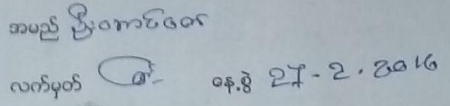 အမည် ဦးအောင်ဇော်
လက်မှတ် နေ့စွဲ 27-2.2016